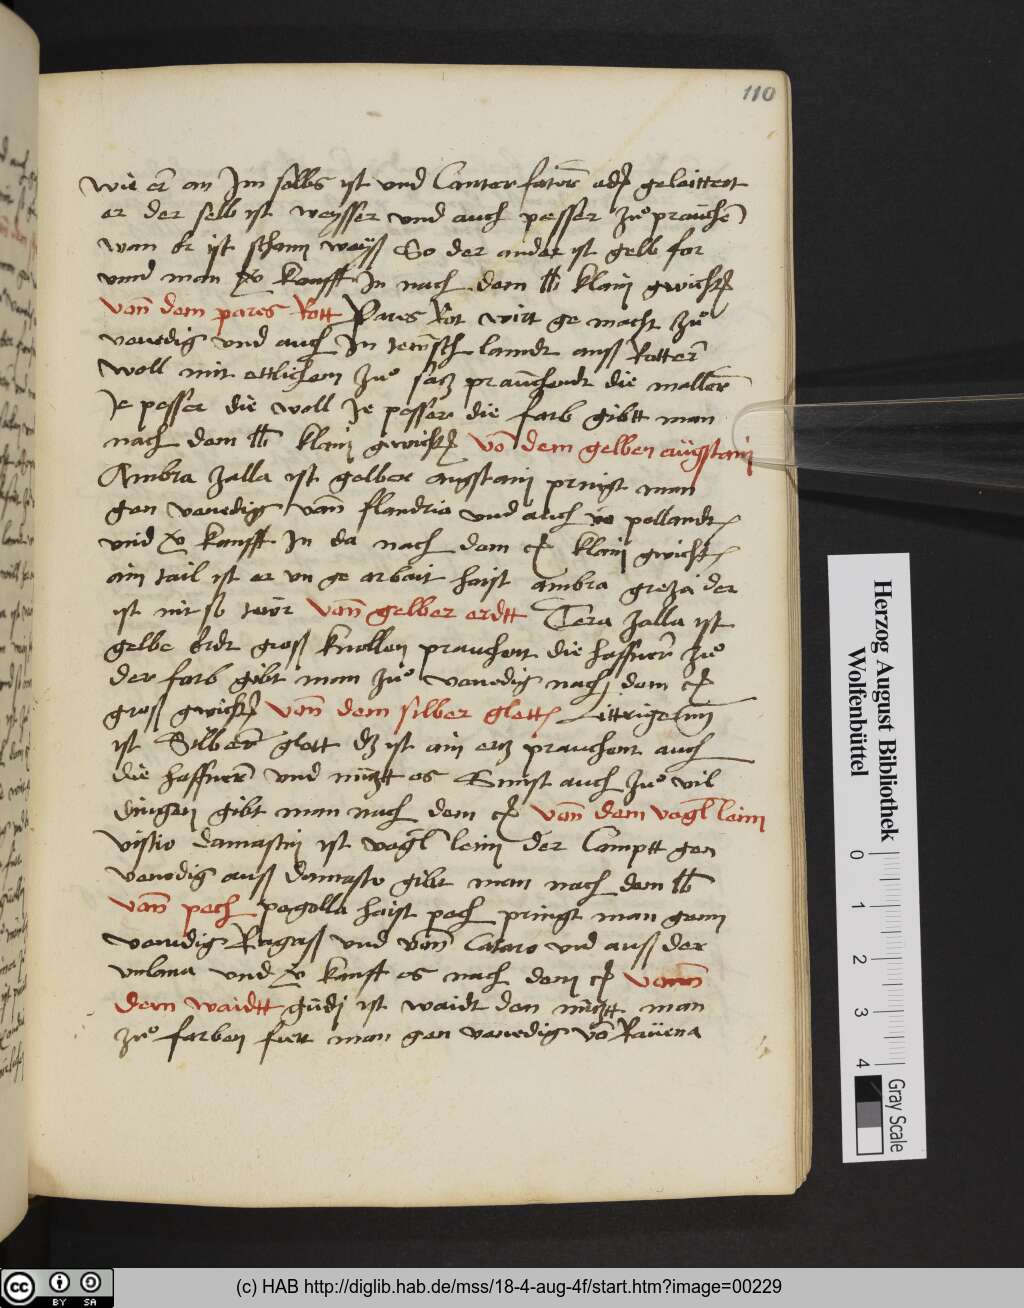 110
wie er an Im selbs ist und Canter fatore oder geleittert
er der selb ist weysser und auch pesser zuo prauchen
wan er ist schenn weyß So der ander ist gelb for
unnd man v̈ kaufft In nach dem lb klain gwicht
vonn dem pares Rott Pares Rot wirt ge macht zuo
venedig und auch In tewsch lanndt auß Rotterr
woll mit ettlichem zuo satz prauchendt die mallerr
Je pesser die woll Je pesser die farb gibtt man
nach dem lb klain gwicht vō dem gelben augstain
Ambra zalla ist gelber augstain pringt man
gen venedig vann flandria und auch vō pollandt
und v̈ kaufft In da nach dem c klain gwicht
ain tail ist er un ge arbait haist ambra greza der
ist nit so tewr vonn gelber erdtt Tera zalla ist
gelbe Erdt groß knollen prauchent die haffnerr zuo
der farb gibt man zuo venedig nach dem c
groß gwicht vonn dem silber glett Littrigerinn
ist Silberr glett dz ist ain ertz prauchent auch
die haffnerr und nützt es Sunst auch zuo vil
dingen gibt man nach dem c vonn dem vogl leim
vistio damastin ist vogl leim der kamptt gen
venedig auß damasto gibt man nach dem lb
vonn pech pegolla haist pech pringt man genn
venedig Raguß und vonn Cataro und auß der
velana und v̈ kaufft es nach dem c vonn
dem waidtt gudj ist waidt den nützt man
zuo farben fiert man gen venedig vō Rauena
Herzog August Bibliothek
Wolfenbüttel
0 1 2 3 4
Gray Scale
cc BY SA
(c) HAB http://diglib.hab.de/mss/18-4-aug-4f/start.htm?image=00229